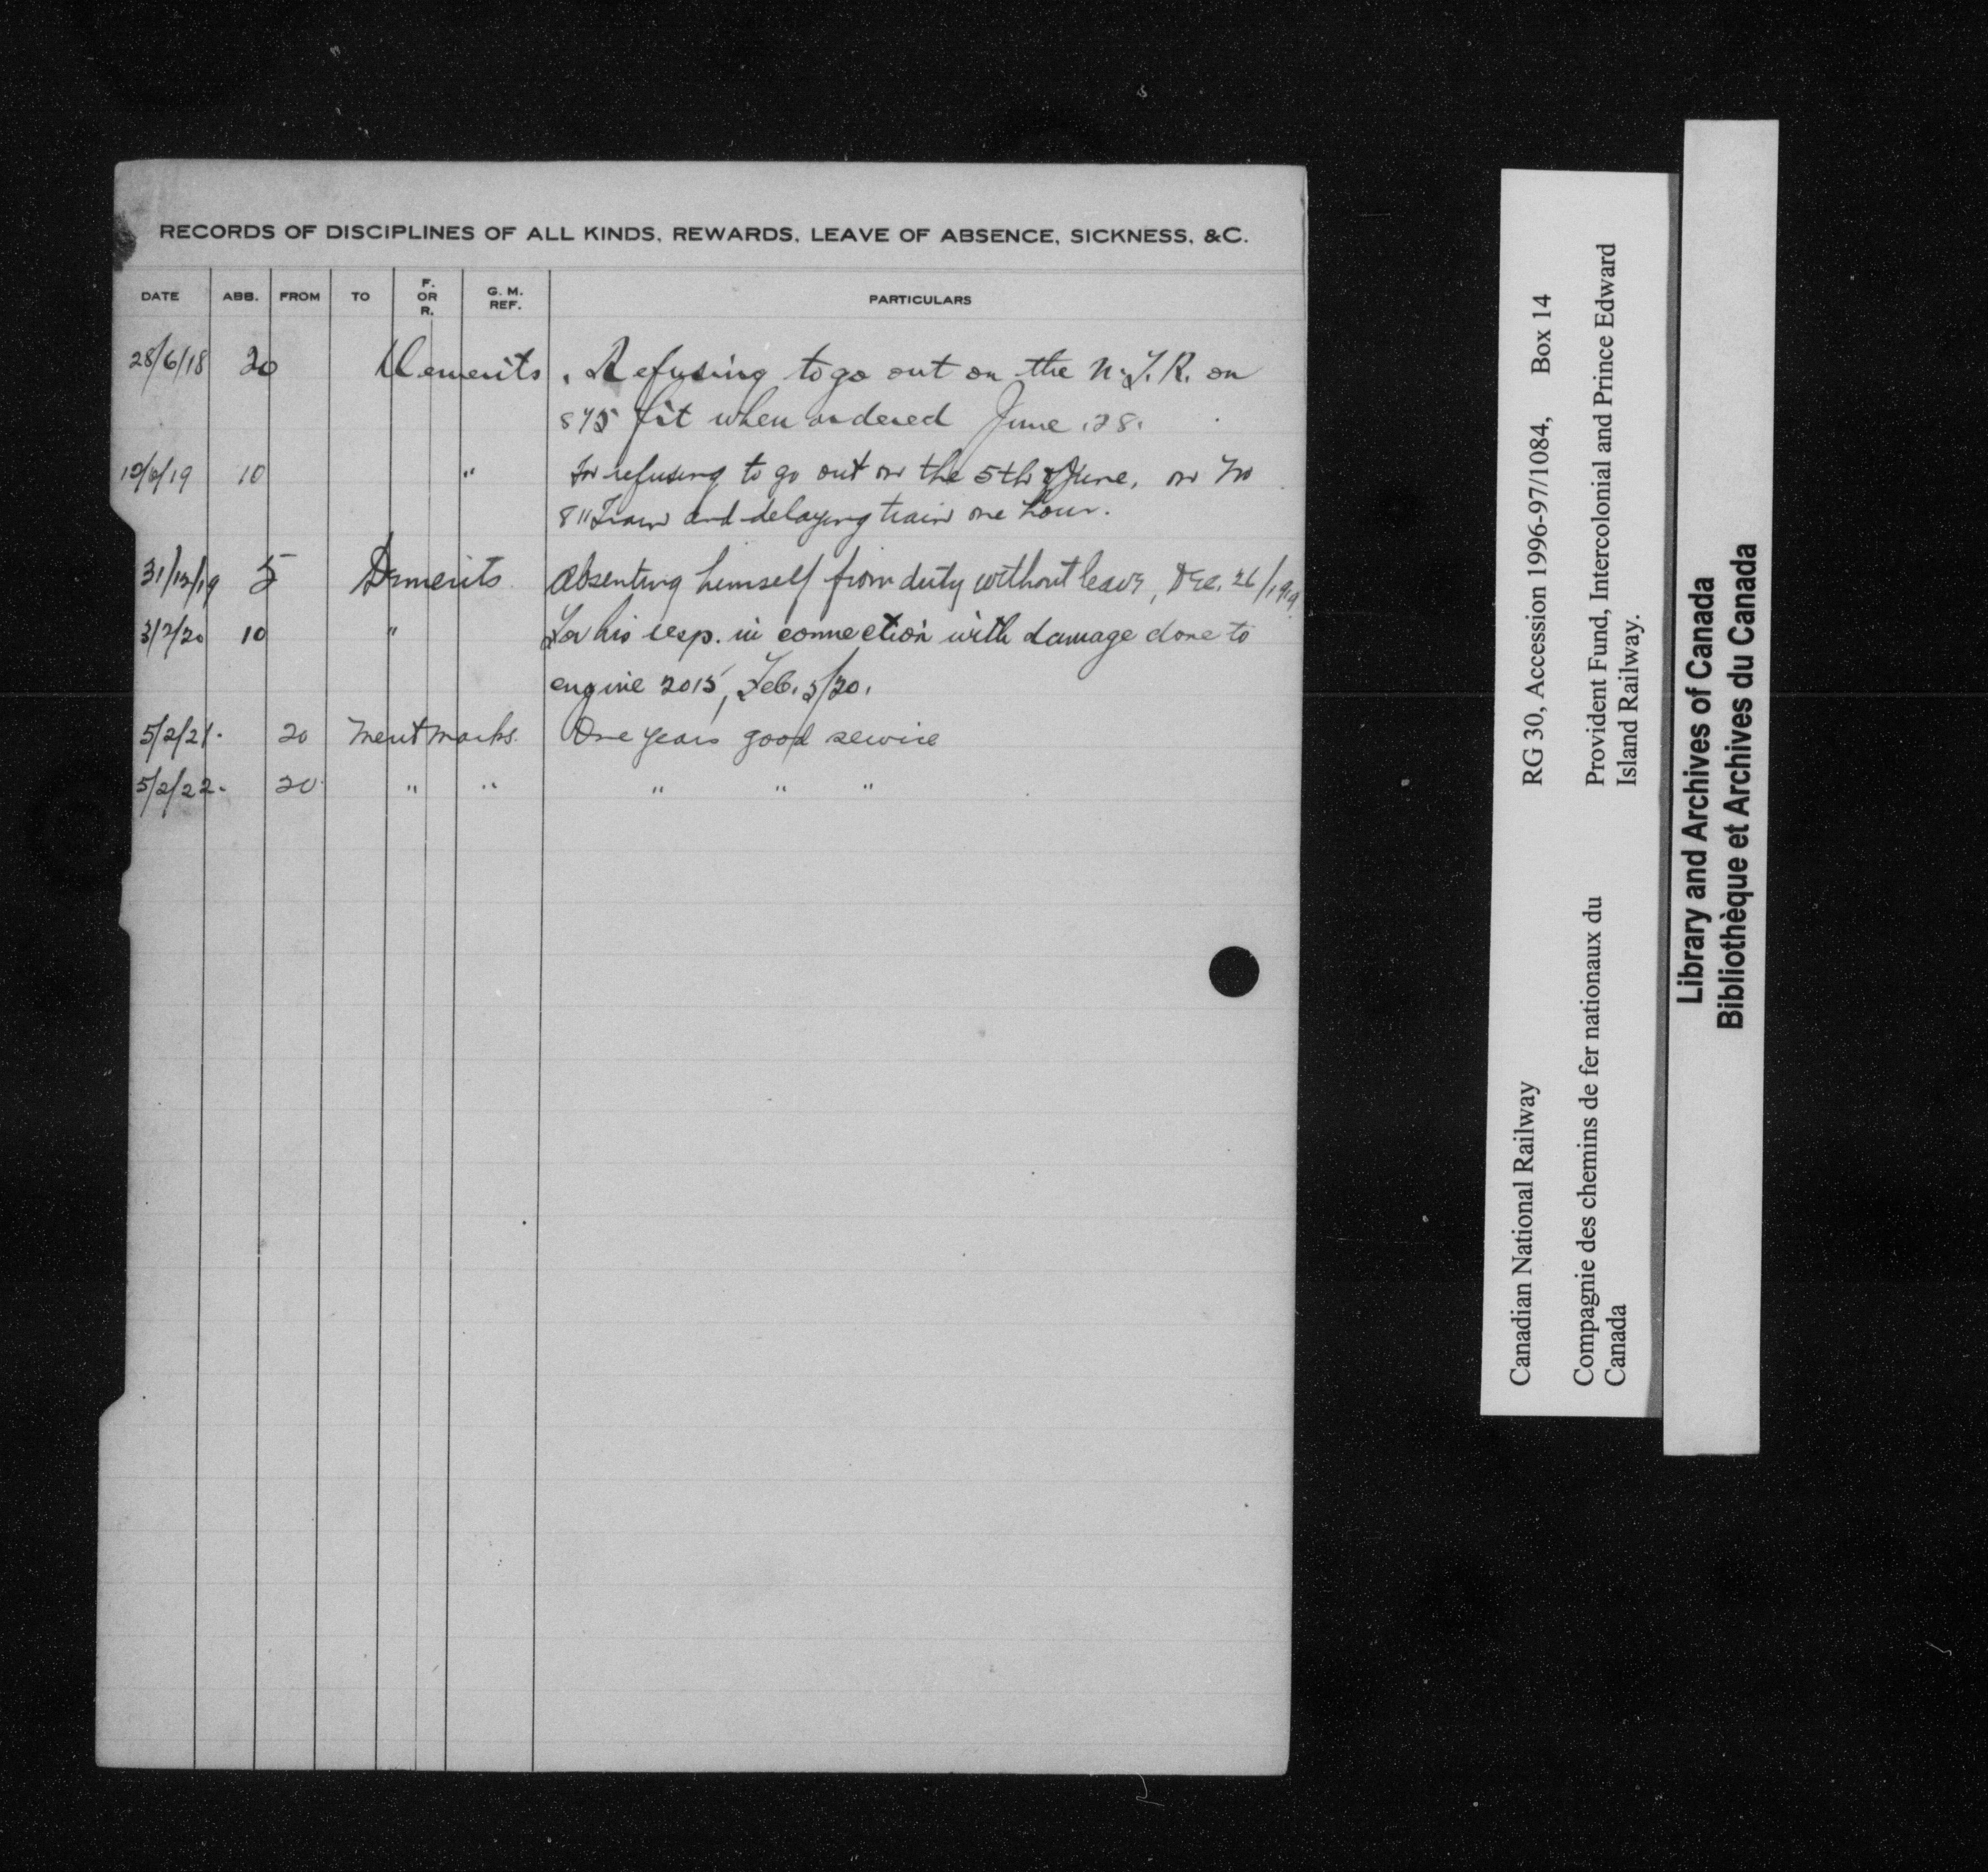 RECORDS OF DISCIPLINES OF ALL KINDS, REWARDS, LEAVE OF ABSENCE, SICKNESS, &C.
DATE ABB. FROM TO F. OR R. G. M. REF. PARTICULARS
28/6/18 20 Demerits. Refusing to go out on the N.T.R. on
875 frt when ordered June. 28.
10/6/19 10 " For refusing to go out on the 5th June, on No
811 Train and delaying train one hour.
31/12/19 5 Demerits. Absenting himself from duty without leave, Dec. 26/1919
3/2/20 10 " For his resp. in connection with damage done to
engine 2015, Feb. 3/20.
5/2/21. 20 Merit marks. One years good service
5/2/22. 20 " " " " "
Canadian National Railway RG 30, Accession 1996-97/1084, Box 14
Compagnie des chemins de fer nationaux du Canada
Provident Fund, Intercolonial and Prince Edward
Island Railway.
Library and Archives of Canada
Bibliothèque et Archives du Canada